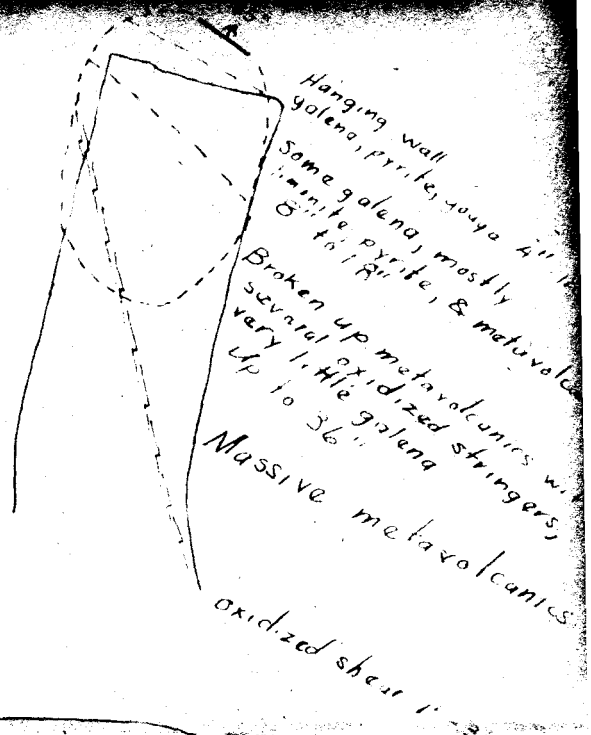 Hanging wall
galena, pyrite, gouge 4"
Some galena, mostly
limonite, pyrite, & metavolc
8" to 18"
Broken up metavolcanics wi
several oxidized stringers,
very little galena
Up to 36"
Massive metavolcanics
oxidized shear